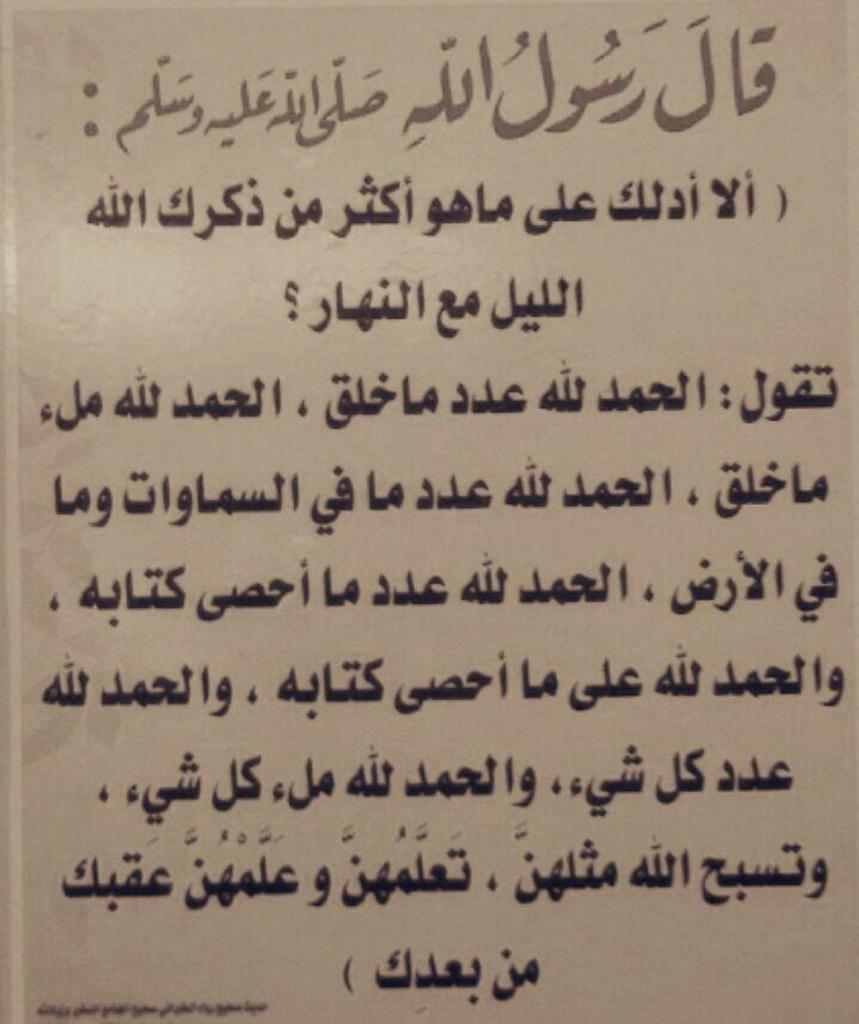 قَالَ رَسُولُ اللّهِ صَلّى اللّه عَليه وسَلّم :
( ألا أدلك على ماهو أكثر من ذكرك الله
الليل مع النهار ؟
تقول : الحمد لله عدد ماخلق ، الحمد لله ملء
ماخلق ، الحمد لله عدد ما في السماوات وما
في الأرض ، الحمد لله عدد ما أحصى كتابه ،
والحمد لله على ما أحصى كتابه ، والحمد لله
عدد كل شيء، والحمد لله ملء كل شيء ،
وتسبح الله مثلهنَّ ، تَعلَّمُهنَّ و علَّمْهُنَّ عَقبك
من بعدِك )